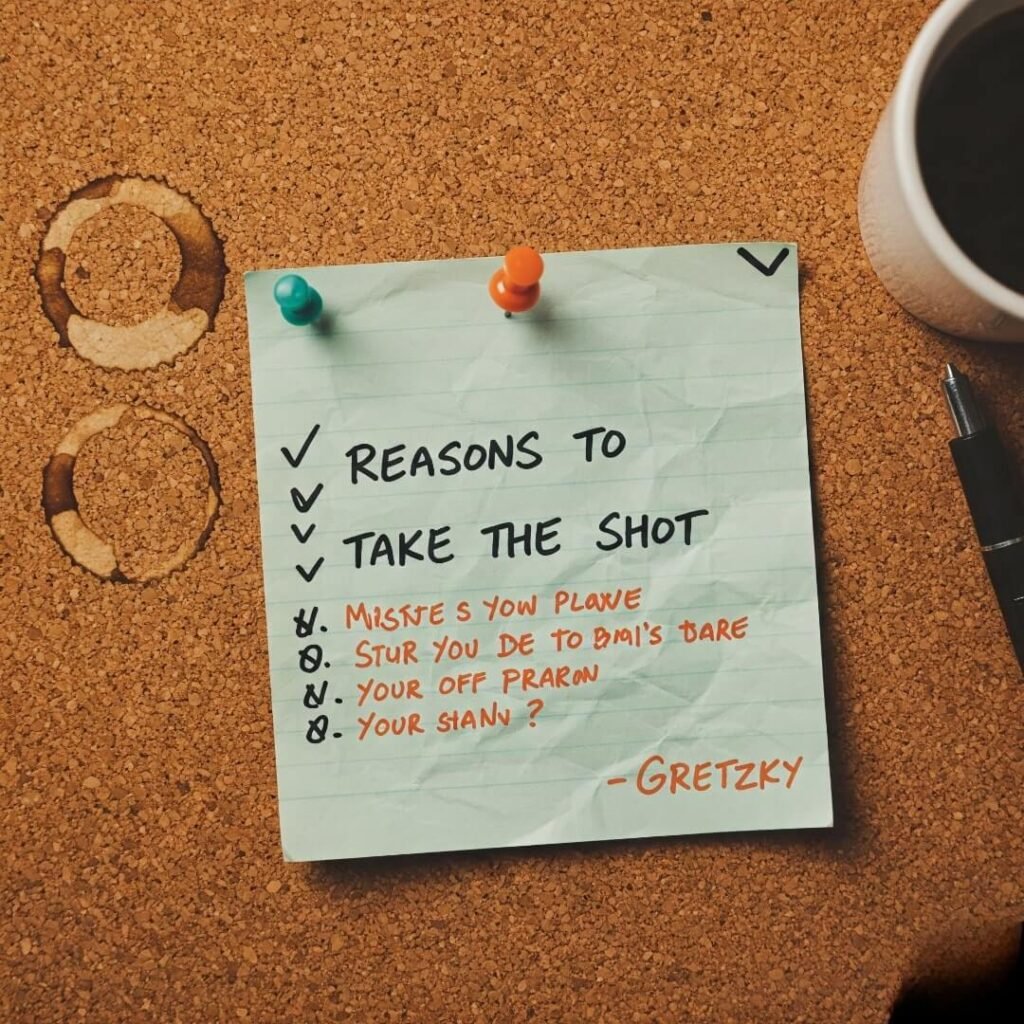 REASONS TO
TAKE THE SHOT
MISSTE S YOW PLAWE
STUR YOU DE TO BMI'S BARE
YOUR OFF PRARON
YOUR STANV ?
- GRETZKY